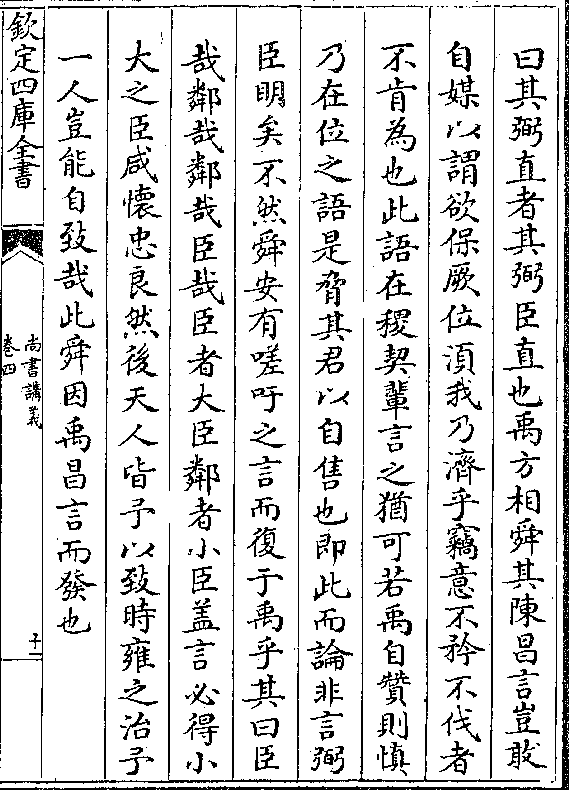 曰其弼直者其弼臣直也禹方相舜其陳昌言豈敢
自媒以謂欲保厥位湏我乃濟乎竊意不矜不伐者
不肯為也此語在稷契輩言之猶可若禹自贊則慎
乃在位之語是脅其君以自售也即此而論非言弼
臣明矣不然舜安有嗟吁之言而復于禹乎其曰臣
哉鄰哉鄰哉臣哉臣者大臣鄰者小臣葢言必得小
大之臣咸懷忠良然後天人皆予以致時雍之治予
一人豈能自致哉此舜因禹昌言而發也
欽定四庫全書
尚書講義
卷四
十一